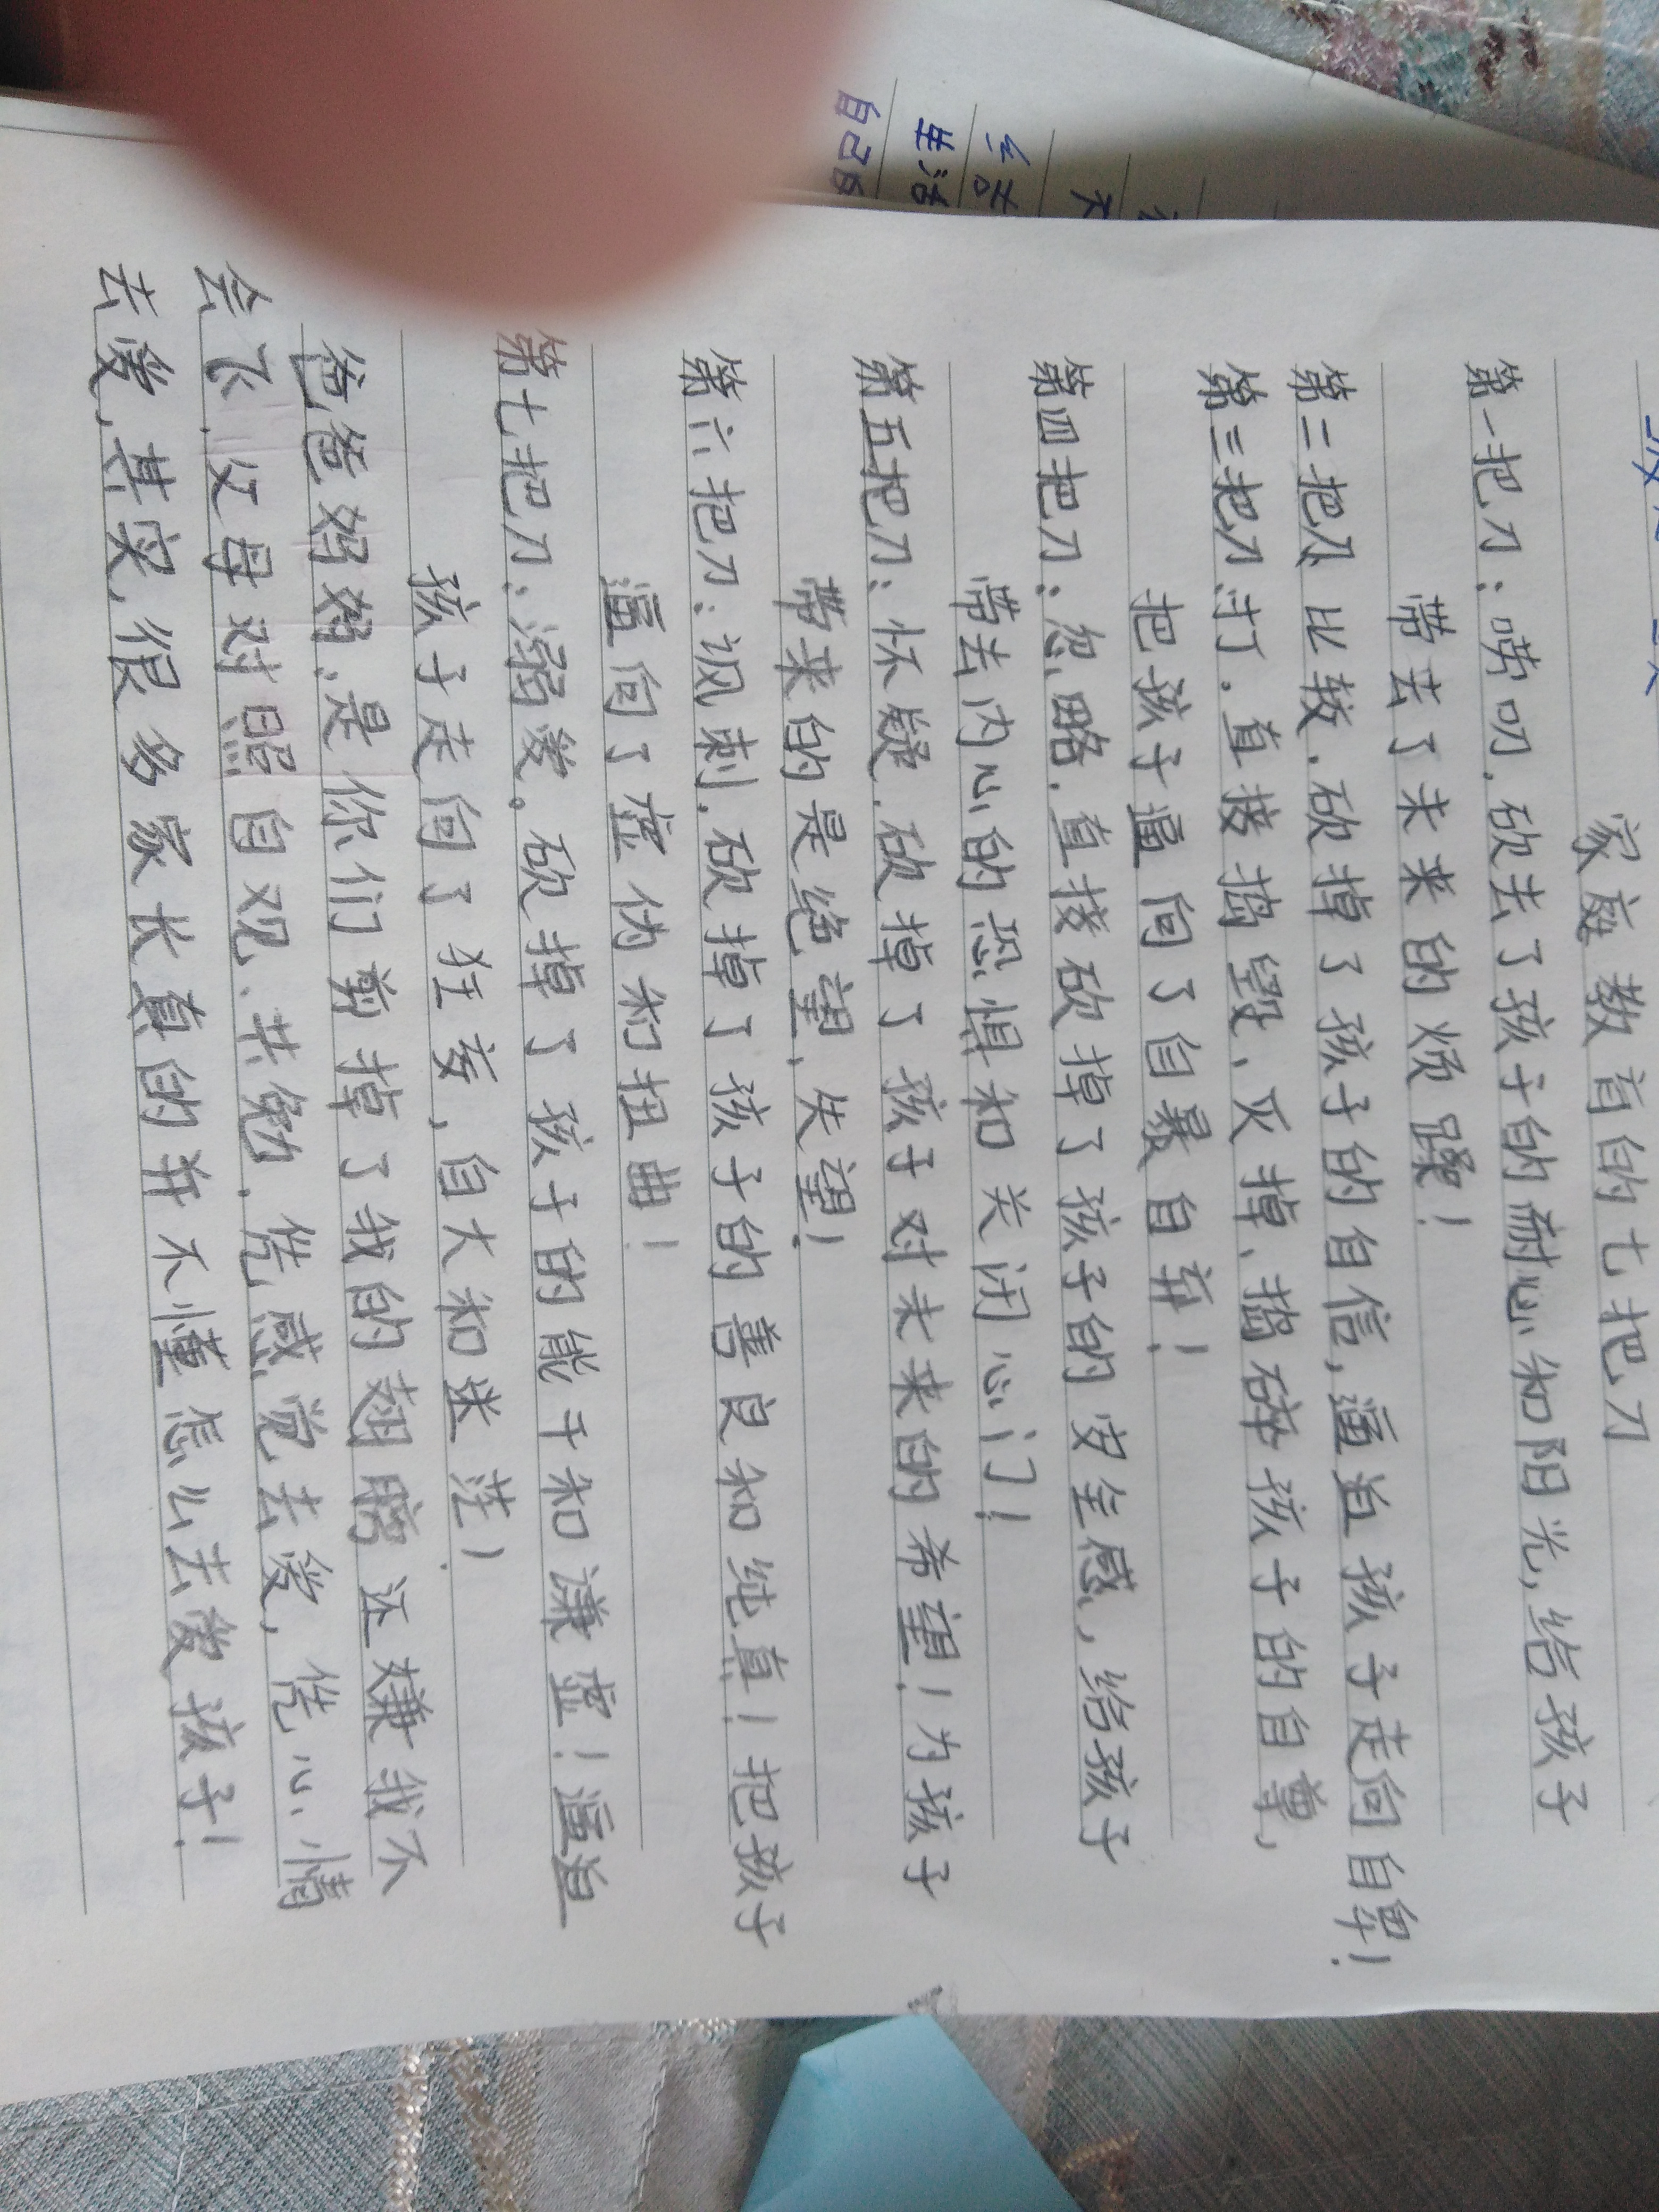 家庭教育的七把刀
第一把刀：唠叨．砍去了孩子的耐心和阳光，给孩子
带去了未来的烦躁！
第二把刀．比较．砍掉了孩子的自信，逼迫孩子走向自卑！
第三把刀．打．直接捣毁、灭掉、捣碎孩子的自尊，
把孩子逼向了自暴自弃！
第四把刀：忽略．直接砍掉了孩子的安全感，给孩子
带去内心的恐惧和关闭心门！
第五把刀：怀疑．砍掉了孩子对未来的希望！为孩子
带来的是绝望，失望！
第六把刀：讽刺．砍掉了孩子的善良和纯真！把孩子
逼向了虚伪和扭曲！
第七把刀：溺爱。砍掉了孩子的能干和谦虚！逼迫
孩子走向了狂妄，自大和迷茫！
爸爸妈妈．是你们剪掉了我的翅膀还嫌我不
会飞．父母对照自观、共勉．凭感觉去爱，凭心情
去爱，其实，很多家长真的并不懂怎么去爱孩子！
自己
生活
去
不